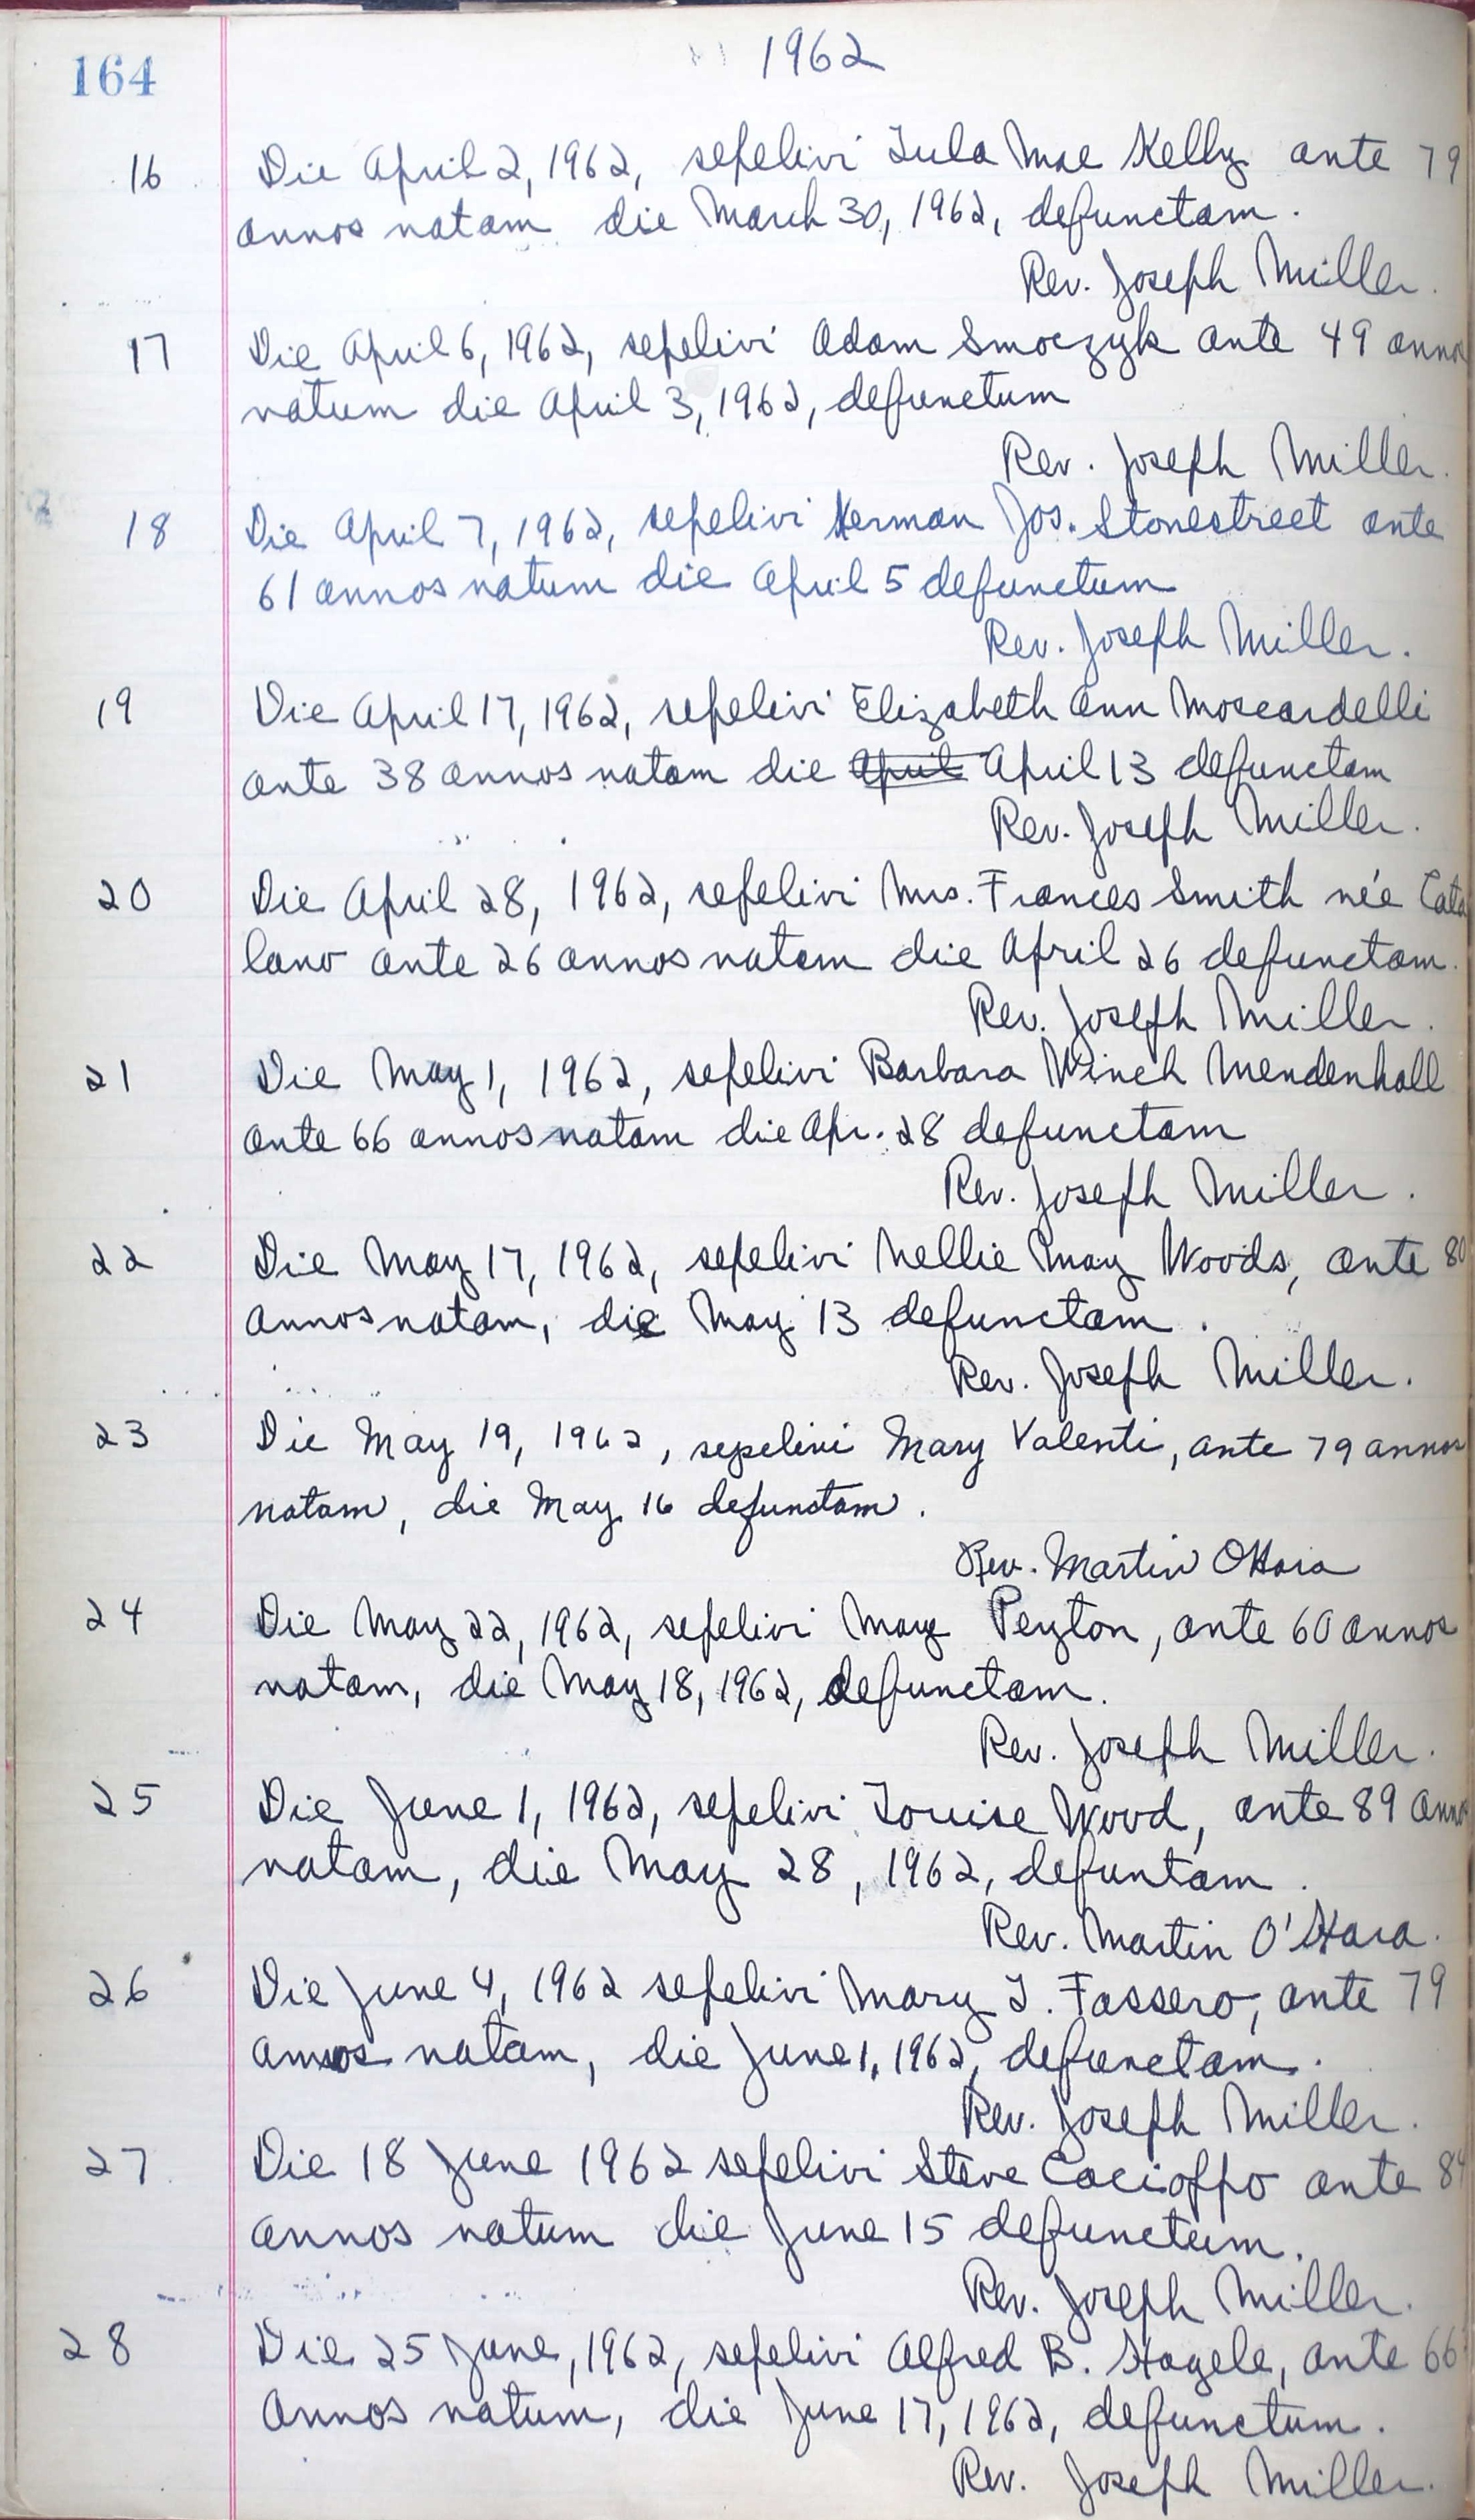 164
1962
16 Die April 2, 1962, sepelivi Lula Mae Kelly ante 79
annos natam die March 30, 1962, defunctam.
Rev. Joseph Miller.
17 Die April 6, 1962, sepelivi Adam Smoczyk ante 49 annos
natum die April 3, 1962, defunctum
Rev. Joseph Miller.
18 Die April 7, 1962, sepelivi Herman Jos. Stonestreet ante
61 annos natum die April 5 defunctum
Rev. Joseph Miller.
19 Die April 17, 1962, sepelivi Elizabeth Ann Moscardelli
ante 38 annos natam die April April 13 defunctam
Rev. Joseph Miller.
20 Die April 28, 1962, sepelivi Mrs. Frances Smith née Cata
lano ante 26 annos natam die April 26 defunctam.
Rev. Joseph Miller.
21 Die May 1, 1962, sepelivi Barbara Winch Mendenhall
ante 66 annos natam die Apr. 28 defunctam
Rev. Joseph Miller.
22 Die May 17, 1962, sepelivi Nellie May Woods, ante 80
annos natam, die May 13 defunctam.
Rev. Joseph Miller.
23 Die May 19, 1962, sepelivi Mary Valenti, ante 79 annos
natam, die May 16 defunctam.
Rev. Martin O'Hara
24 Die May 22, 1962, sepelivi May Peyton, ante 60 annos
natam, die May 18, 1962, defunctam.
Rev. Joseph Miller.
25 Die June 1, 1962, sepelivi Louise Wood, ante 89 annos
natam, die May 28, 1962, defuntam.
Rev. Martin O'Hara.
26 Die June 4, 1962 sepelivi Mary L. Fassero, ante 79
annos natam, die June 1, 1962, defunctam.
Rev. Joseph Miller.
27 Die 18 June 1962 sepelivi Steve Cacioppo ante 84
annos natum die June 15 defunctum.
Rev. Joseph Miller.
28 Die 25 June, 1962, sepelivi Alfred B. Hagele, ante 66
annos natum, die June 17, 1962, defunctum.
Rev. Joseph Miller.